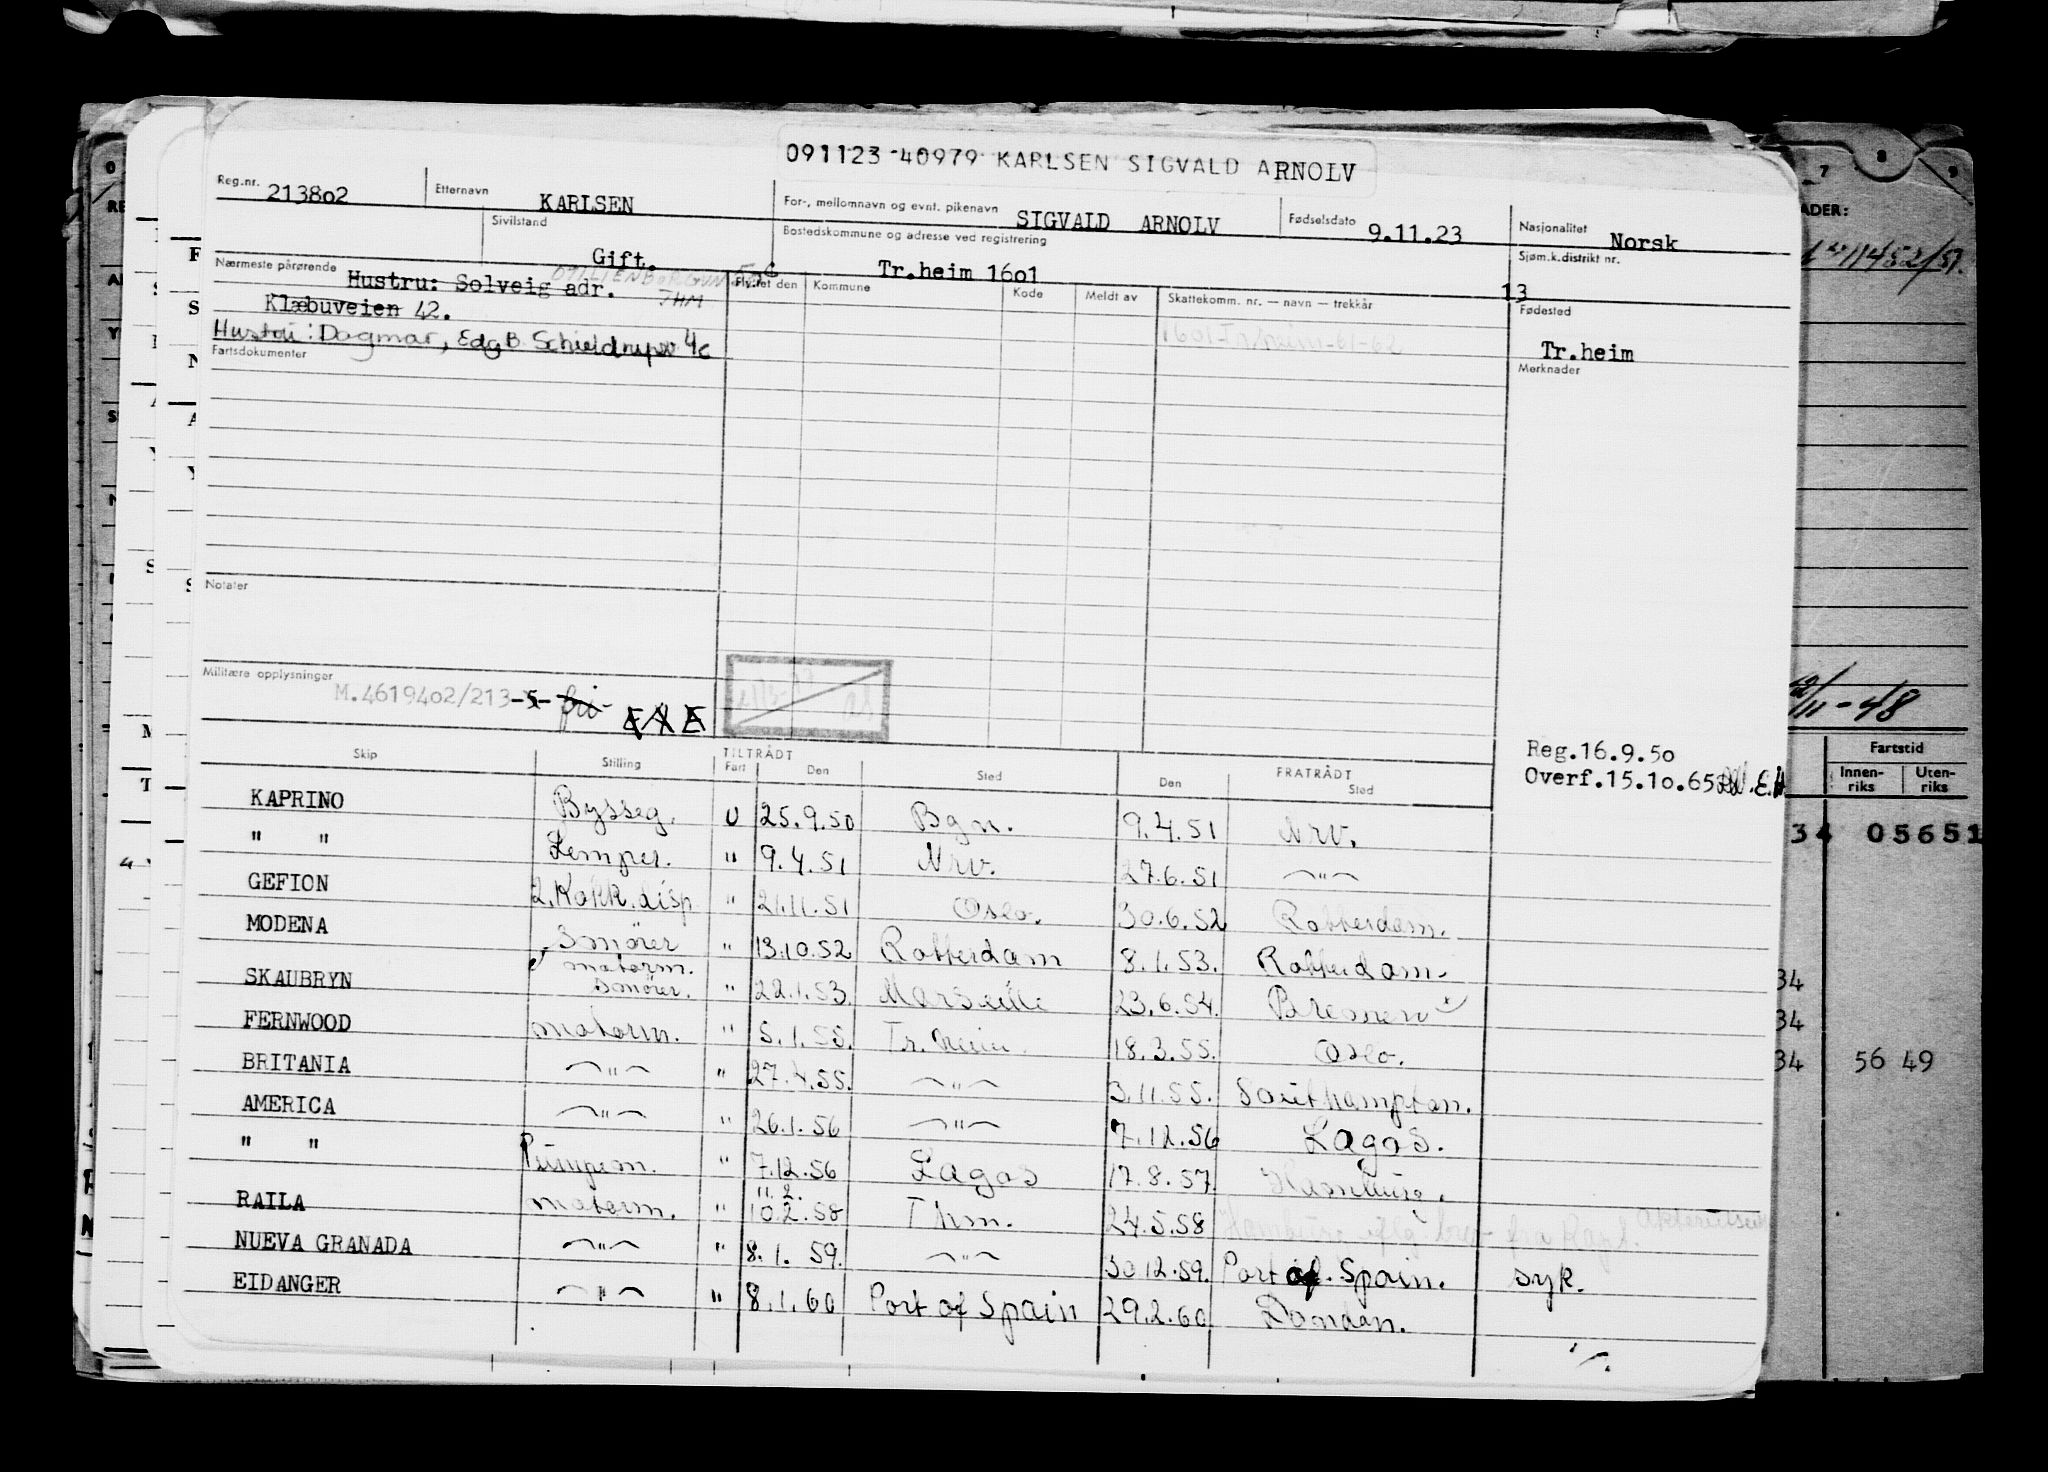 091123 40979 KARLSEN SIGVALD ARNOLV
Reg.nr. 2138o2 Etternavn KARLSEN For-, mellomnavn og evnt. pikenavn SIGVALD ARNOLV Fødselsdato 9.11.23 Nasjonalitet Norsk
Sivilstand Gift. Bostedskommune og adresse ved registrering Tr.heim 16o1 Sjøm.k.distrikt nr. 13
Nærmeste pårørende Hustru: Solveig adr. THM
Klæbuveien 42.
Hustru: Dagmar, Edg B. Schieldrupsv 4c
Flyttet den Kommune Kode Meldt av Skattekomm. nr. — navn — trekkår Fødested
1601-Tr.heim-61-62
Tr.heim
Fartsdokumenter Merknader
Notater
Militære opplysninger M.46194o2/213-5- fri
Reg.16.9.5o
Overf.15.1o.65 E.H.
Skip Stilling TILTRÅDT Fart Den Sted FRATRÅDT Den Sted
KAPRINO Bysseg. U 25.9.50 Bgn. 9.4.51 Nrv.
" " Lemper. " 9.4.51 Nrv. 27.6.51 —"—
GEFION 2. Kokk.disp " 21.11.51 Oslo. 30.6.52 Rotterdam.
MODENA Smører " 13.10.52 Rotterdam 8.1.53. Rotterdam.
SKAUBRYN motorm. smører. " 22.1.53. Marseille 23.6.54. Bremen
FERNWOOD motorm. " 5.1.55. Tr.heim 18.3.55. Oslo.
BRITANIA —"— " 27.4.55. —"— 3.11.55. Southampton.
AMERICA —"— " 26.1.56 —"— 7.12.56 Lagos.
" " Pumpem. " 7.12.56 Lagos 17.8.57. Hamburg.
RAILA motorm. " 11.2. 10.2.58 Thm. 24.5.58 Hamburg iflg. brev fra Kapt.
NUEVA GRANADA —"— " 8.1. 59. —"— 30.12.59. Port of. Spain. syk.
EIDANGER —"— " 8.1.60 Port of Spain 29.2.60 London.
7 8 9
ADER:
11452/51.
12/11-48
Fartstid
Innen-riks Uten-riks
34 05651
34
34
34 56 49